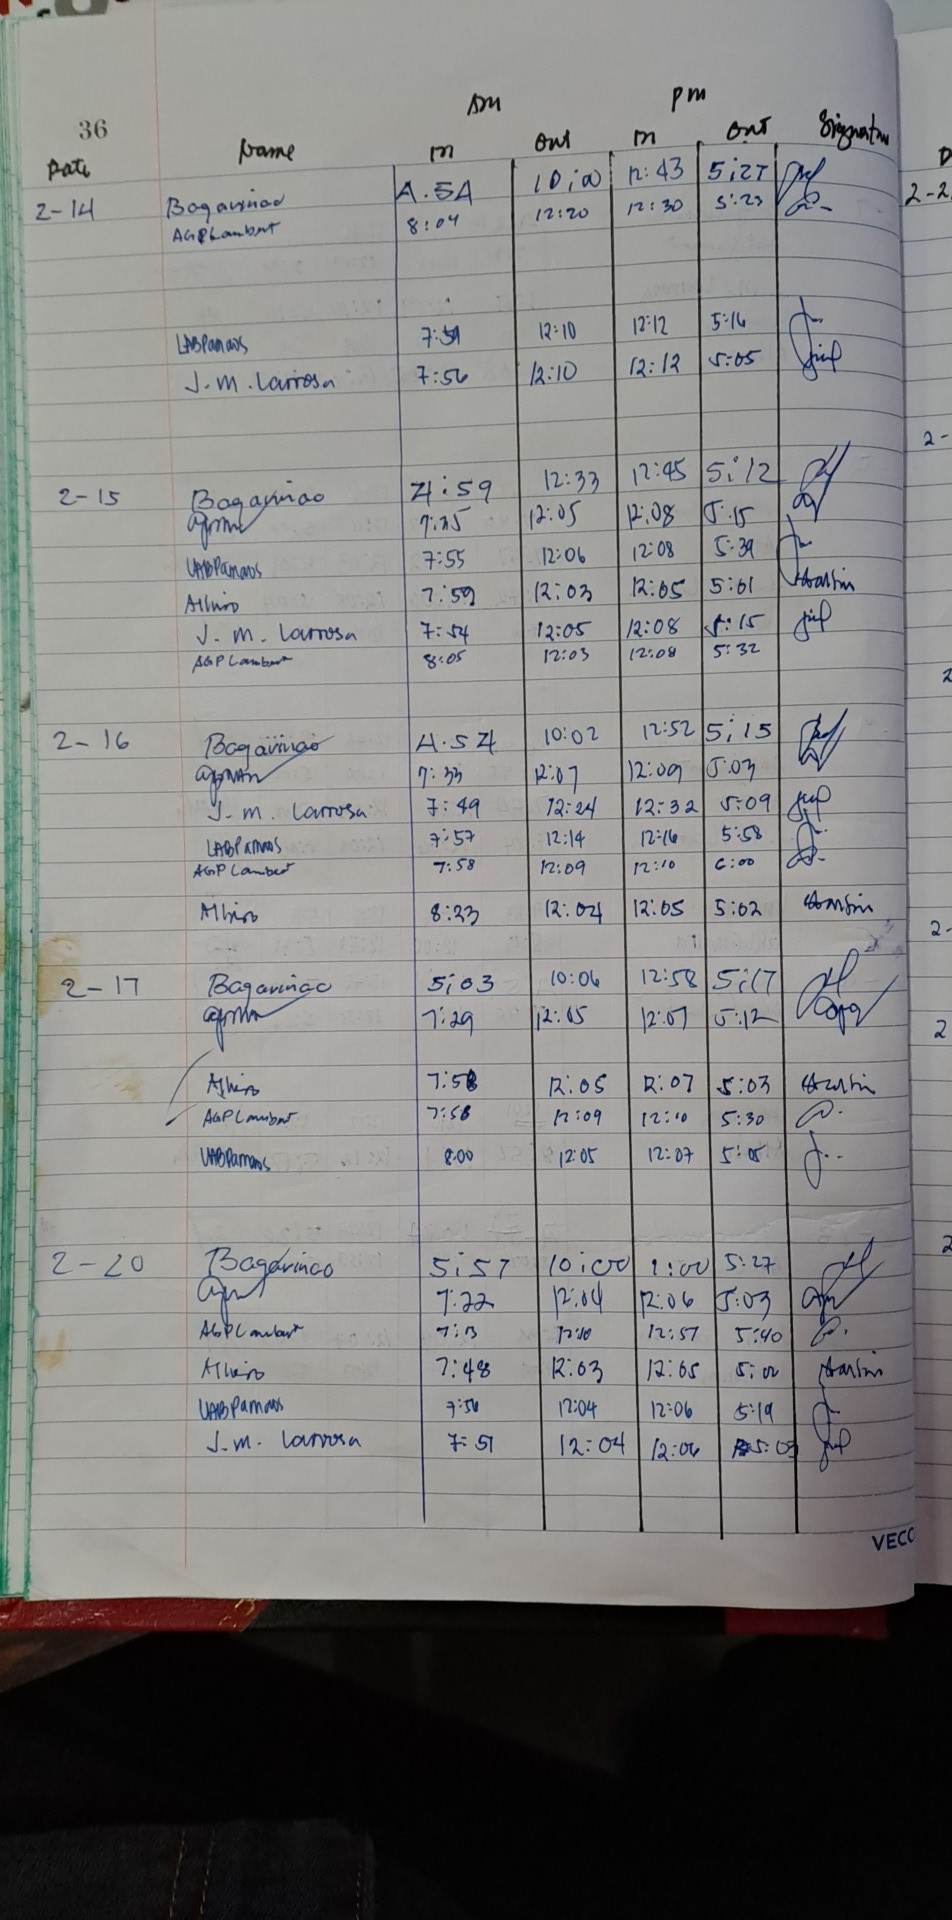 Am pm
36
Date Name in out in out Signature
2-14 Bagarinao 4.54 10:00 12:43 5:27
AGPLambert 8:04 12:20 12:30 5:23
LABPamaos 7:59 12:10 12:12 5:16
J.M. Larrosa 7:56 12:10 12:12 5:05
2-15 Bagarinao 4:59 12:33 12:45 5:12
7:25 12:05 12:08 5:15
LABPamaos 7:55 12:06 12:08 5:39
7:59 12:03 12:05 5:01
J.M. Larrosa 7:54 12:05 12:08 5:15
AGPLambert 8:05 12:03 12:08 5:32
2-16 Bagarinao 4.54 10:02 12:52 5:15
7:33 12:07 12:09 5:03
J.M. Larrosa 7:49 12:24 12:32 5:09
LABPamaos 7:57 12:14 12:16 5:58
AGPLambert 7:58 12:09 12:10 6:00
8:23 12:04 12:05 5:02
2-17 Bagarinao 5:03 10:06 12:58 5:17
7:29 12:05 12:07 5:12
7:58 12:05 12:07 5:03
AGPLambert 7:58 12:09 12:10 5:30
LABPamaos 8:00 12:05 12:07 5:05
2-20 Bagarinao 5:57 10:00 1:00 5:27
7:22 12:04 12:06 5:03
AGPLambert 7:13 12:10 12:57 5:40
7:48 12:03 12:05 5:02
LABPamaos 7:56 12:04 12:06 5:19
J.M. Larrosa 7:51 12:04 12:06 5:03
VECO